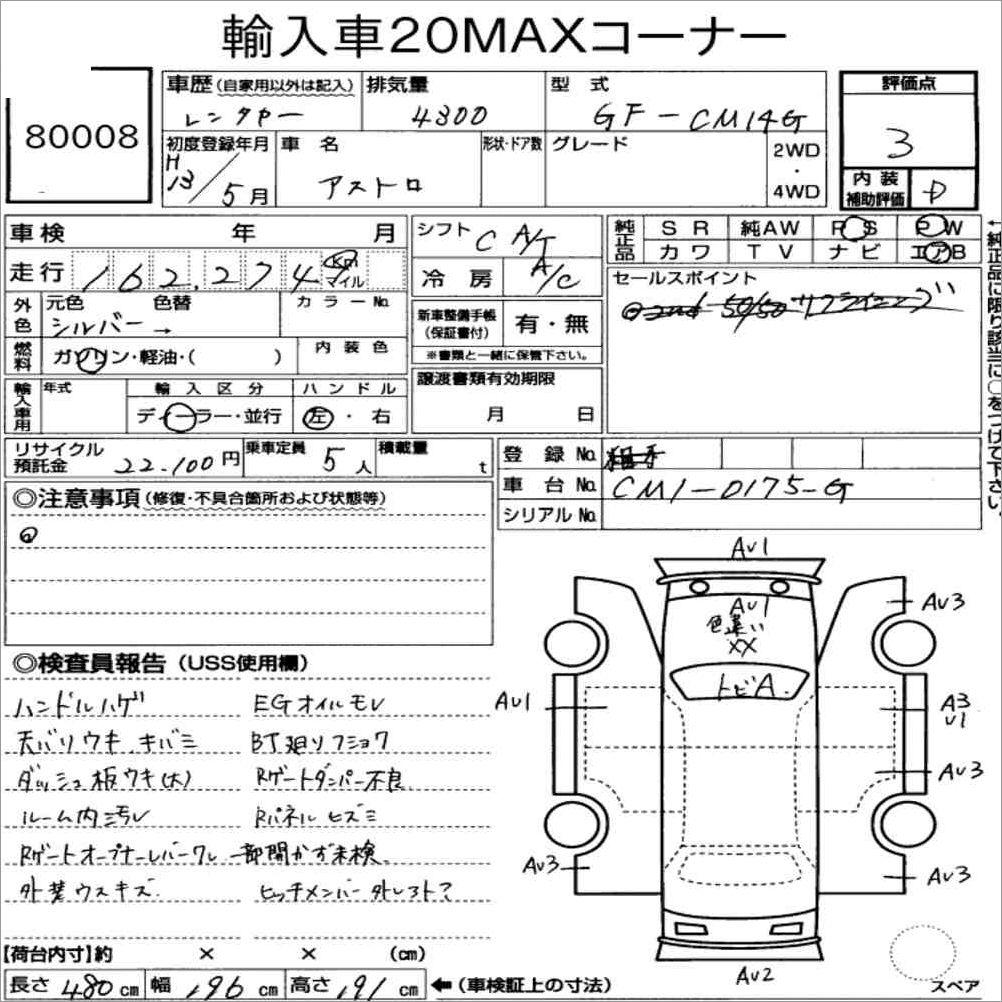 輸入車20MAXコーナー
80008
車歴 (自家用以外は記入)
レンタカー
排気量
4300
型式
GF-CM14G
評価点
3
内装補助評価
D
初度登録年月
H13/5月
車名
アストロ
形状・ドア数
グレード
2WD
・
4WD
車検 年 月
走行 162,274 Km マイル
シフト C A/T
冷房 A/C
純正品
SR 純AW PS PW
カワ TV ナビ エアB
←純正品に限り該当に○をつけて下さい。
セールスポイント
外色
元色 色替
シルバー →
カラーNo.
燃料
ガソリン・軽油・( )
内装色
新車整備手帳
(保証書付)
有・無
※書類と一緒に保管下さい。
輸入車用
年式
輸入区分
ディーラー・並行
ハンドル
左・右
譲渡書類有効期限
月 日
リサイクル預託金 22.100円
乗車定員 5人
積載量 t
登録No.
車台No. CM1-0175-G
シリアルNo.
◎注意事項 (修復・不具合箇所および状態等)
◎検査員報告 (USS使用欄)
ハンドルハゲ
EGオイルモレ
天バリウキ、キバミ
BT廻リフショク
ダッシュ板ウキ(大)
Rゲートダンパー不良
ルーム内汚レ
Rパネルヒズミ
Rゲートオープナーレバーワレ 一部開かず未検
外装ウスキズ
ヒッチメンバー外レスト?
AU1
AU1
色違い
XX
トビA.
AU3
AU1
A3
U1
AU3
AU3
AU3
AU2
スペア
【荷台内寸】約 × × (cm)
長さ 480 cm 幅 196 cm 高さ 191 cm ←(車検証上の寸法)